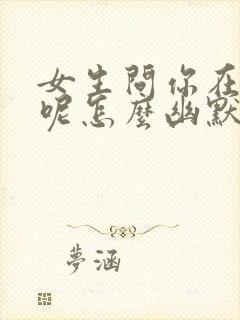 女生問你在
呢怎麼幽默
夢涵